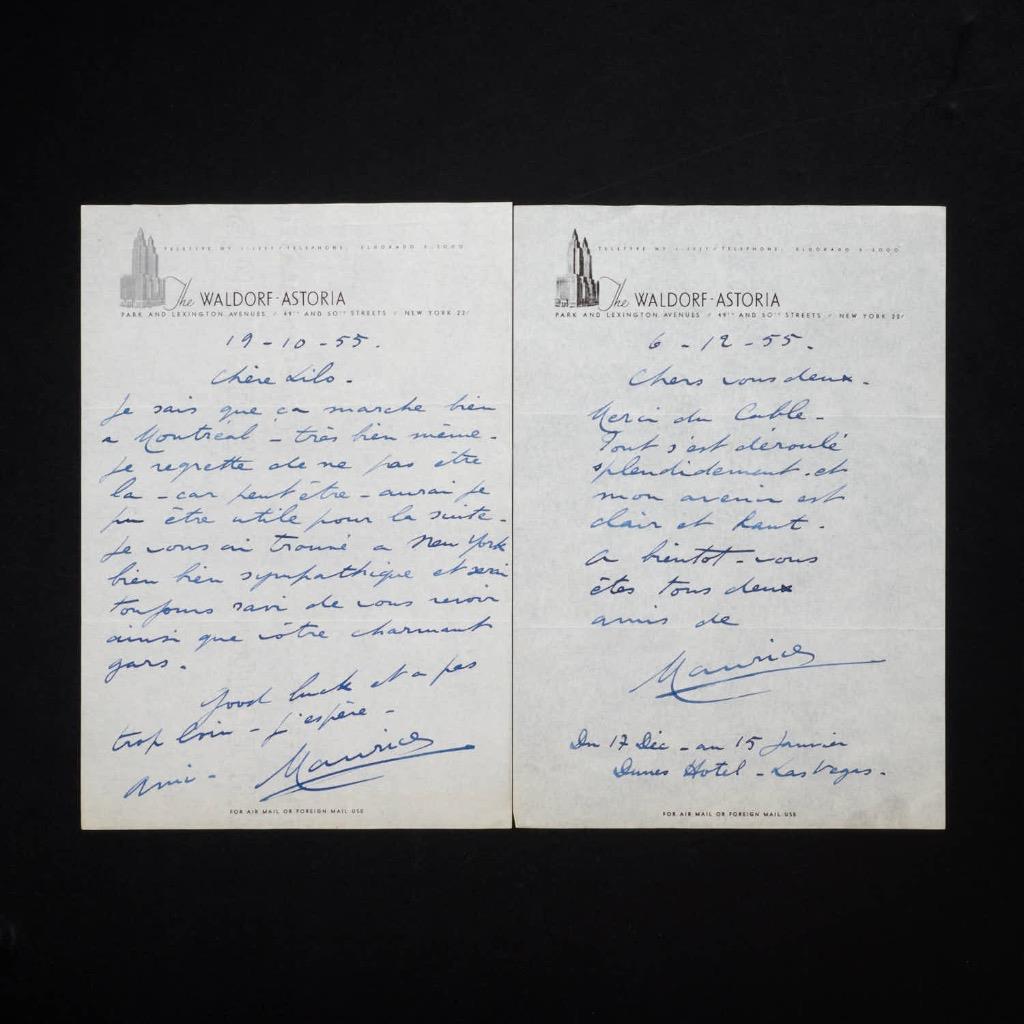 TELETYPE NY TELEPHONE, ELDORADO 5-3000
The WALDORF-ASTORIA
PARK AND LEXINGTON AVENUES / 49TH AND 50TH STREETS / NEW YORK 22/
19-10-55.
Chère Lilo.
Je sais que ça marche bien
a Montréal - très bien même.
Je regrette de ne pas être
la - car peut être - aurai je
pu être utile pour la suite.
Je vous ai trouvé a New York
bien bien sympathique et serai
toujours ravi de vous revoir
ainsi que vôtre charmant
gars.
Good luck et a pas
trop loin - j'espère -
ami - Maurice
FOR AIR MAIL OR FOREIGN MAIL USE
TELETYPE NY TELEPHONE, ELDORADO 5-3000
The WALDORF-ASTORIA
PARK AND LEXINGTON AVENUES / 49TH AND 50TH STREETS / NEW YORK 22/
6-12-55.
Chers vous deux.
Merci du Cable -
Tout s'est déroulé
splendidement. et
mon avenir est
clair et haut.
A bientot - vous
êtes tous deux
amis de
Maurice
Du 17 Déc - au 15 Janvier
Dunes Hotel - Las Vegas.
FOR AIR MAIL OR FOREIGN MAIL USE